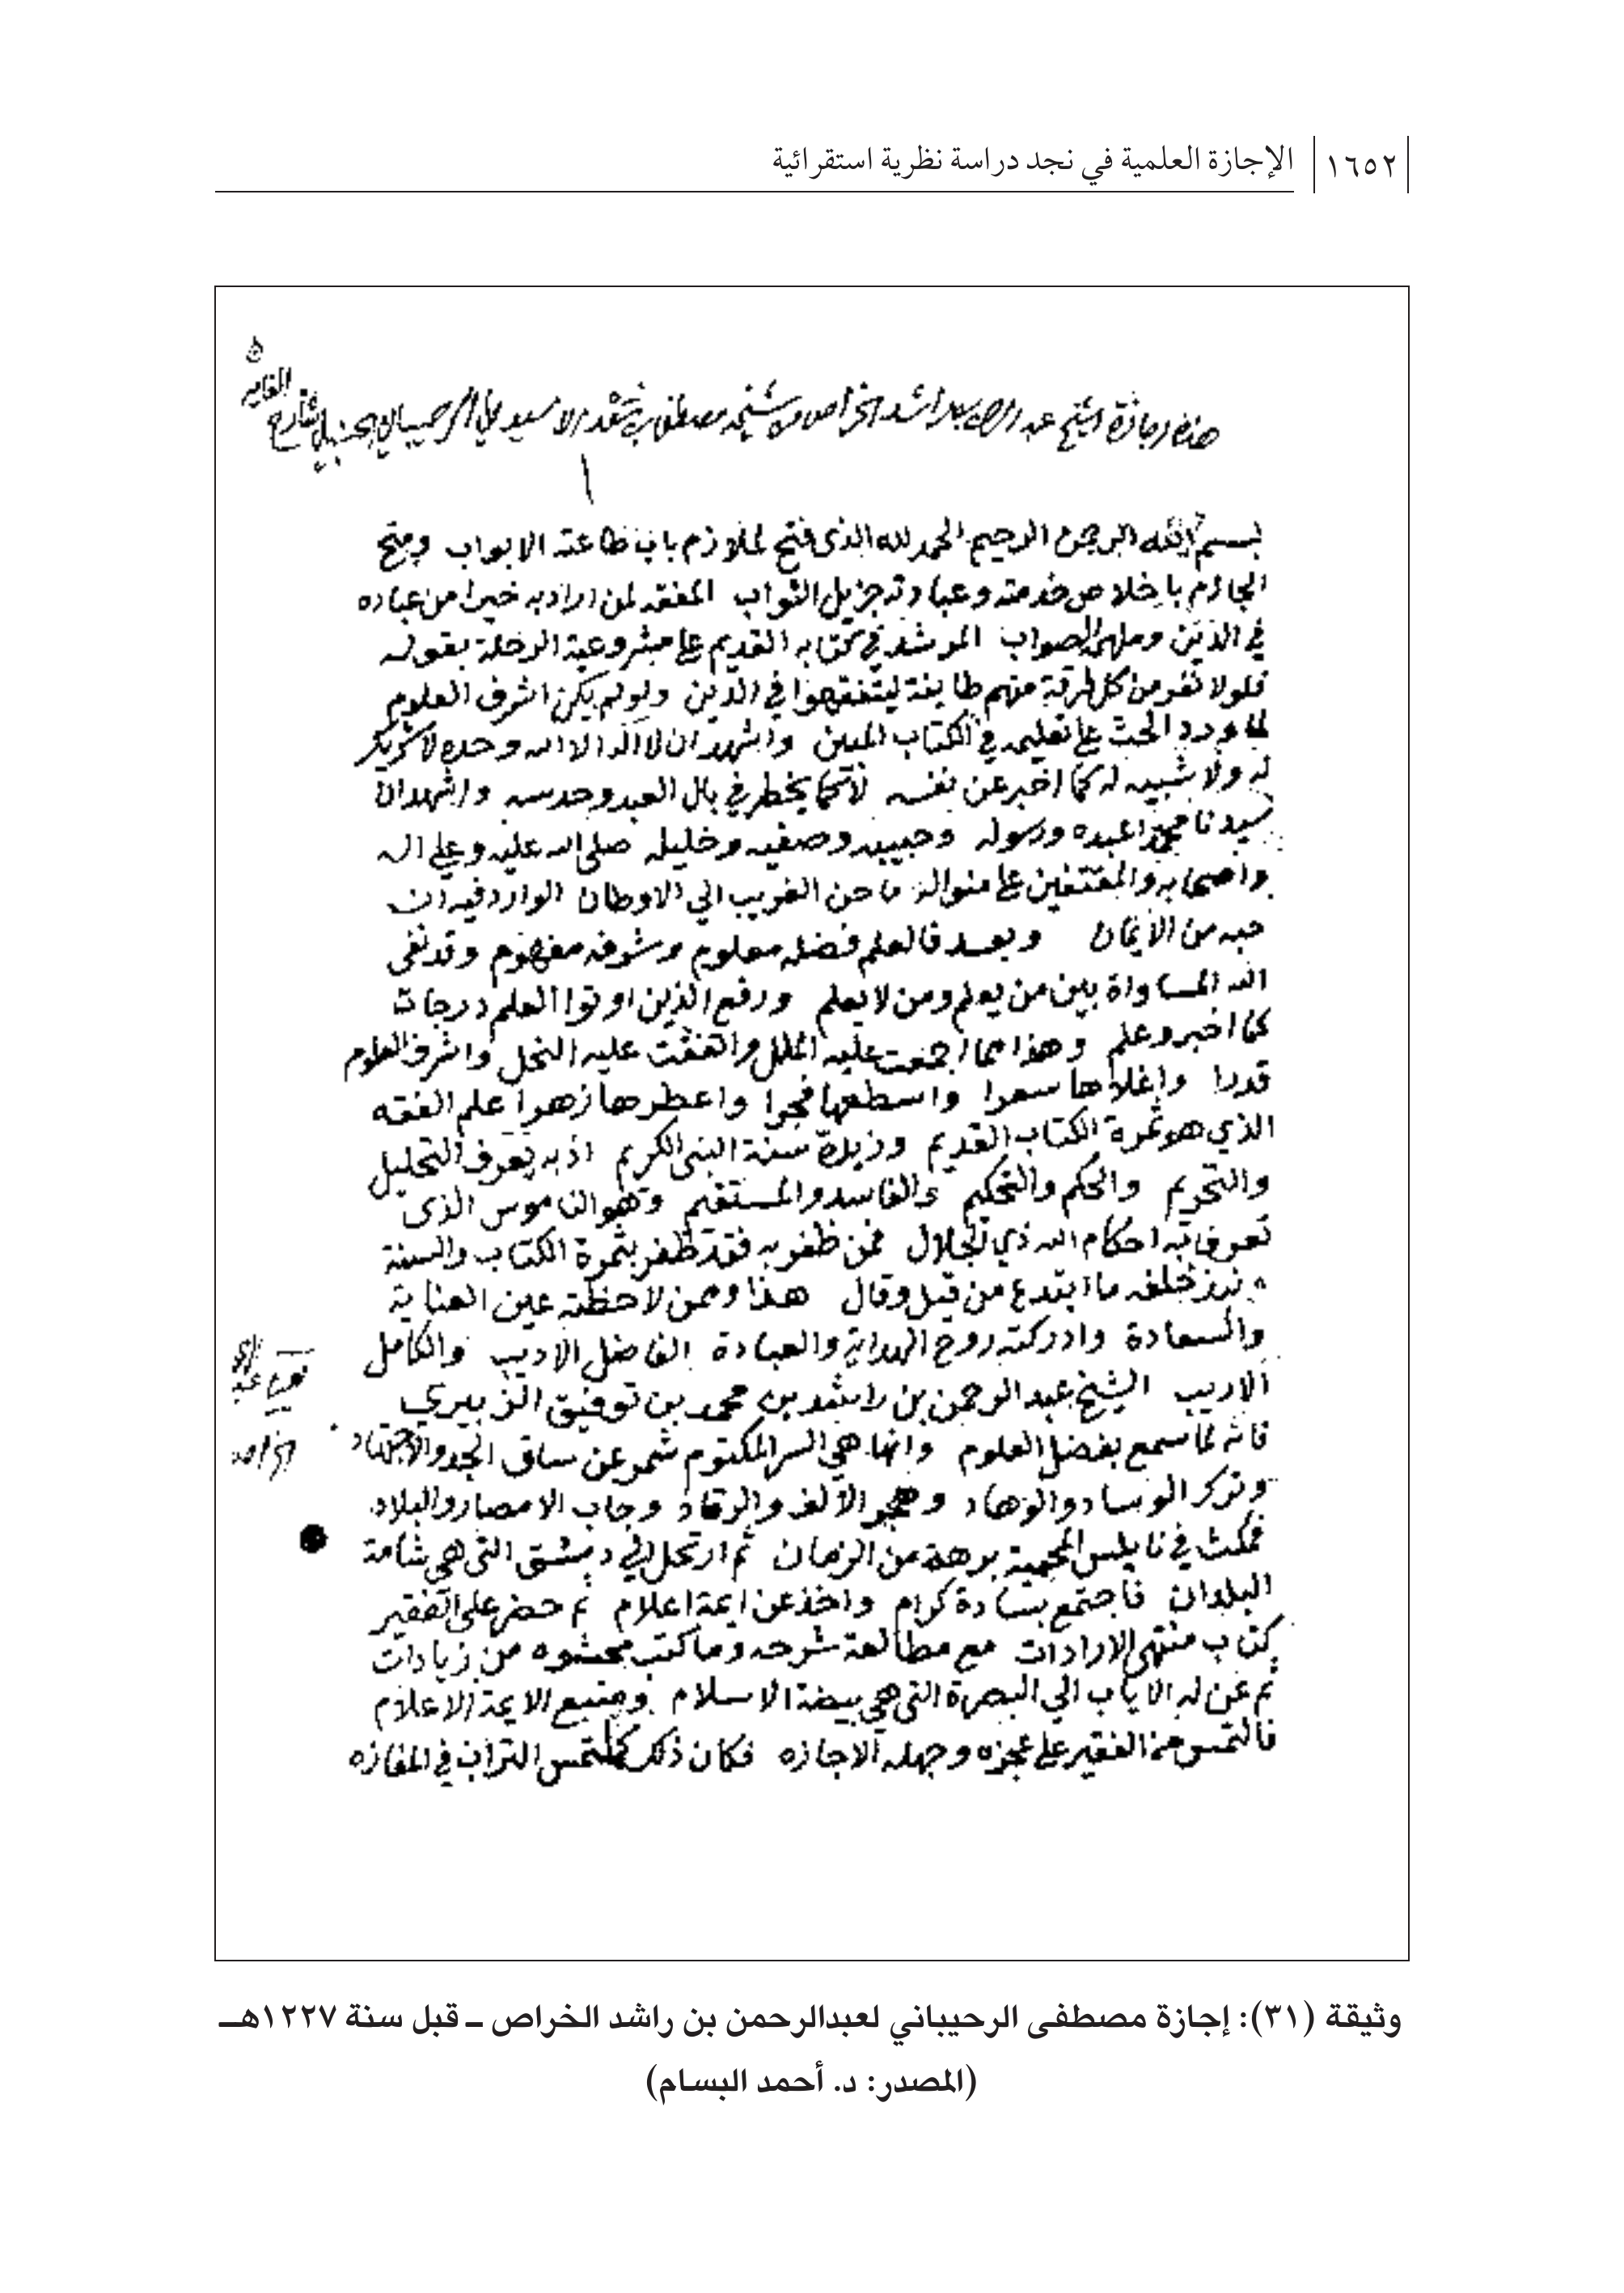 ١٦٥٢ الإجازة العلمية في نجد دراسة نظرية استقرائية
هذه اجازة الشيخ عبد الرحمن بن راشد الخراص من شيخه مصطفى بن سعد الاسيوطي الرحيباني الحنبلي شارح الغايه
بسم الله الرحمن الرحيم الحمد لله الذي فتح لملازم باب طاعته الابواب ومنح
الجازم باخلاص خدمته وعبادته جزيل الثواب المفقه لمن اراد به خيرا من عباده
في الدين وملهم الصواب المرشد في كتابه القديم على مشروعية الرحلة بقوله
فلولا نفر من كل فرقة منهم طايفة ليتفقهوا في الدين ولو لم يكن اشرف العلوم
لما ورد الحث على تعليمه في الكتاب المبين واشهد ان لا اله الا الله وحده لا شريك
له ولا شبيه له كما اخبر عن نفسه لا كما يخطر في بال العبد وحدسه واشهد ان
سيدنا محمدا عبده ورسوله وحبيبه وصفيه وخليله صلى الله عليه وعلى اله
واصحابه والمقتفين على منواله ما حن الغريب الي الاوطان الوارد فيه ان
حبه من الايمان وبعد فالعلم فضله معلوم وشرفه مفهوم وقد نفى
الله المساواة بين من يعلم ومن لا يعلم ورفع الذين اوتوا العلم درجات
كما اخبر وعلم وهذا مما اجمعت عليه الملل واتفقت عليه النحل واشرف العلوم
قدرا واغلاها سعرا واسطعها فجرا واعطرها زهرا علم الفقه
الذي هو ثمرة الكتاب القديم وزبدة سنة النبي الكريم اذ به يعرف التحليل
والتحريم والحكم والتحكيم والفاسد والمستقيم وهو الناموس الذي
تعرف به احكام الله ذي الجلال فمن ظفر به فقد ظفر بثمرة الكتاب والسنة
ونبذ خلفه ما ابتدع من قيل وقال هذا وممن لاحظته عين العناية
والسعادة وادركته روح الهداية والعبادة الفاضل الاديب والكامل
الاريب الشيخ عبد الرحمن بن راشد بن محمد بن توفيق الزبيري
فانه لما سمع بفضل العلوم وانها هي السر المكتوم شمر عن ساق الجد والاجتهاد
وترك الوساد والوهاد وهجر الالف والرقاد وجاب الامصار والبلاد
فمكث في نابلس المحمية برهة من الزمان ثم ارتحل الي دمشق التي هي شامة
البلدان فاجتمع بسادة كرام واخذ عن ايمة اعلام ثم حضر على الفقير
كتاب منتهى الارادات مع مطالعة شرحه وما كتب محشوه من زيادات
ثم عن له الاياب الي البصرة التي هي بيضة الاسلام ومنبع الايمة الاعلام
فالتمس من الفقير على عجزه وجهله الاجازه فكان ذلك كملتمس التراب في المفازه
وثيقة (٣١): إجازة مصطفى الرحيباني لعبدالرحمن بن راشد الخراص ـ قبل سنة ١٢٢٧هـ
(المصدر: د. أحمد البسام)